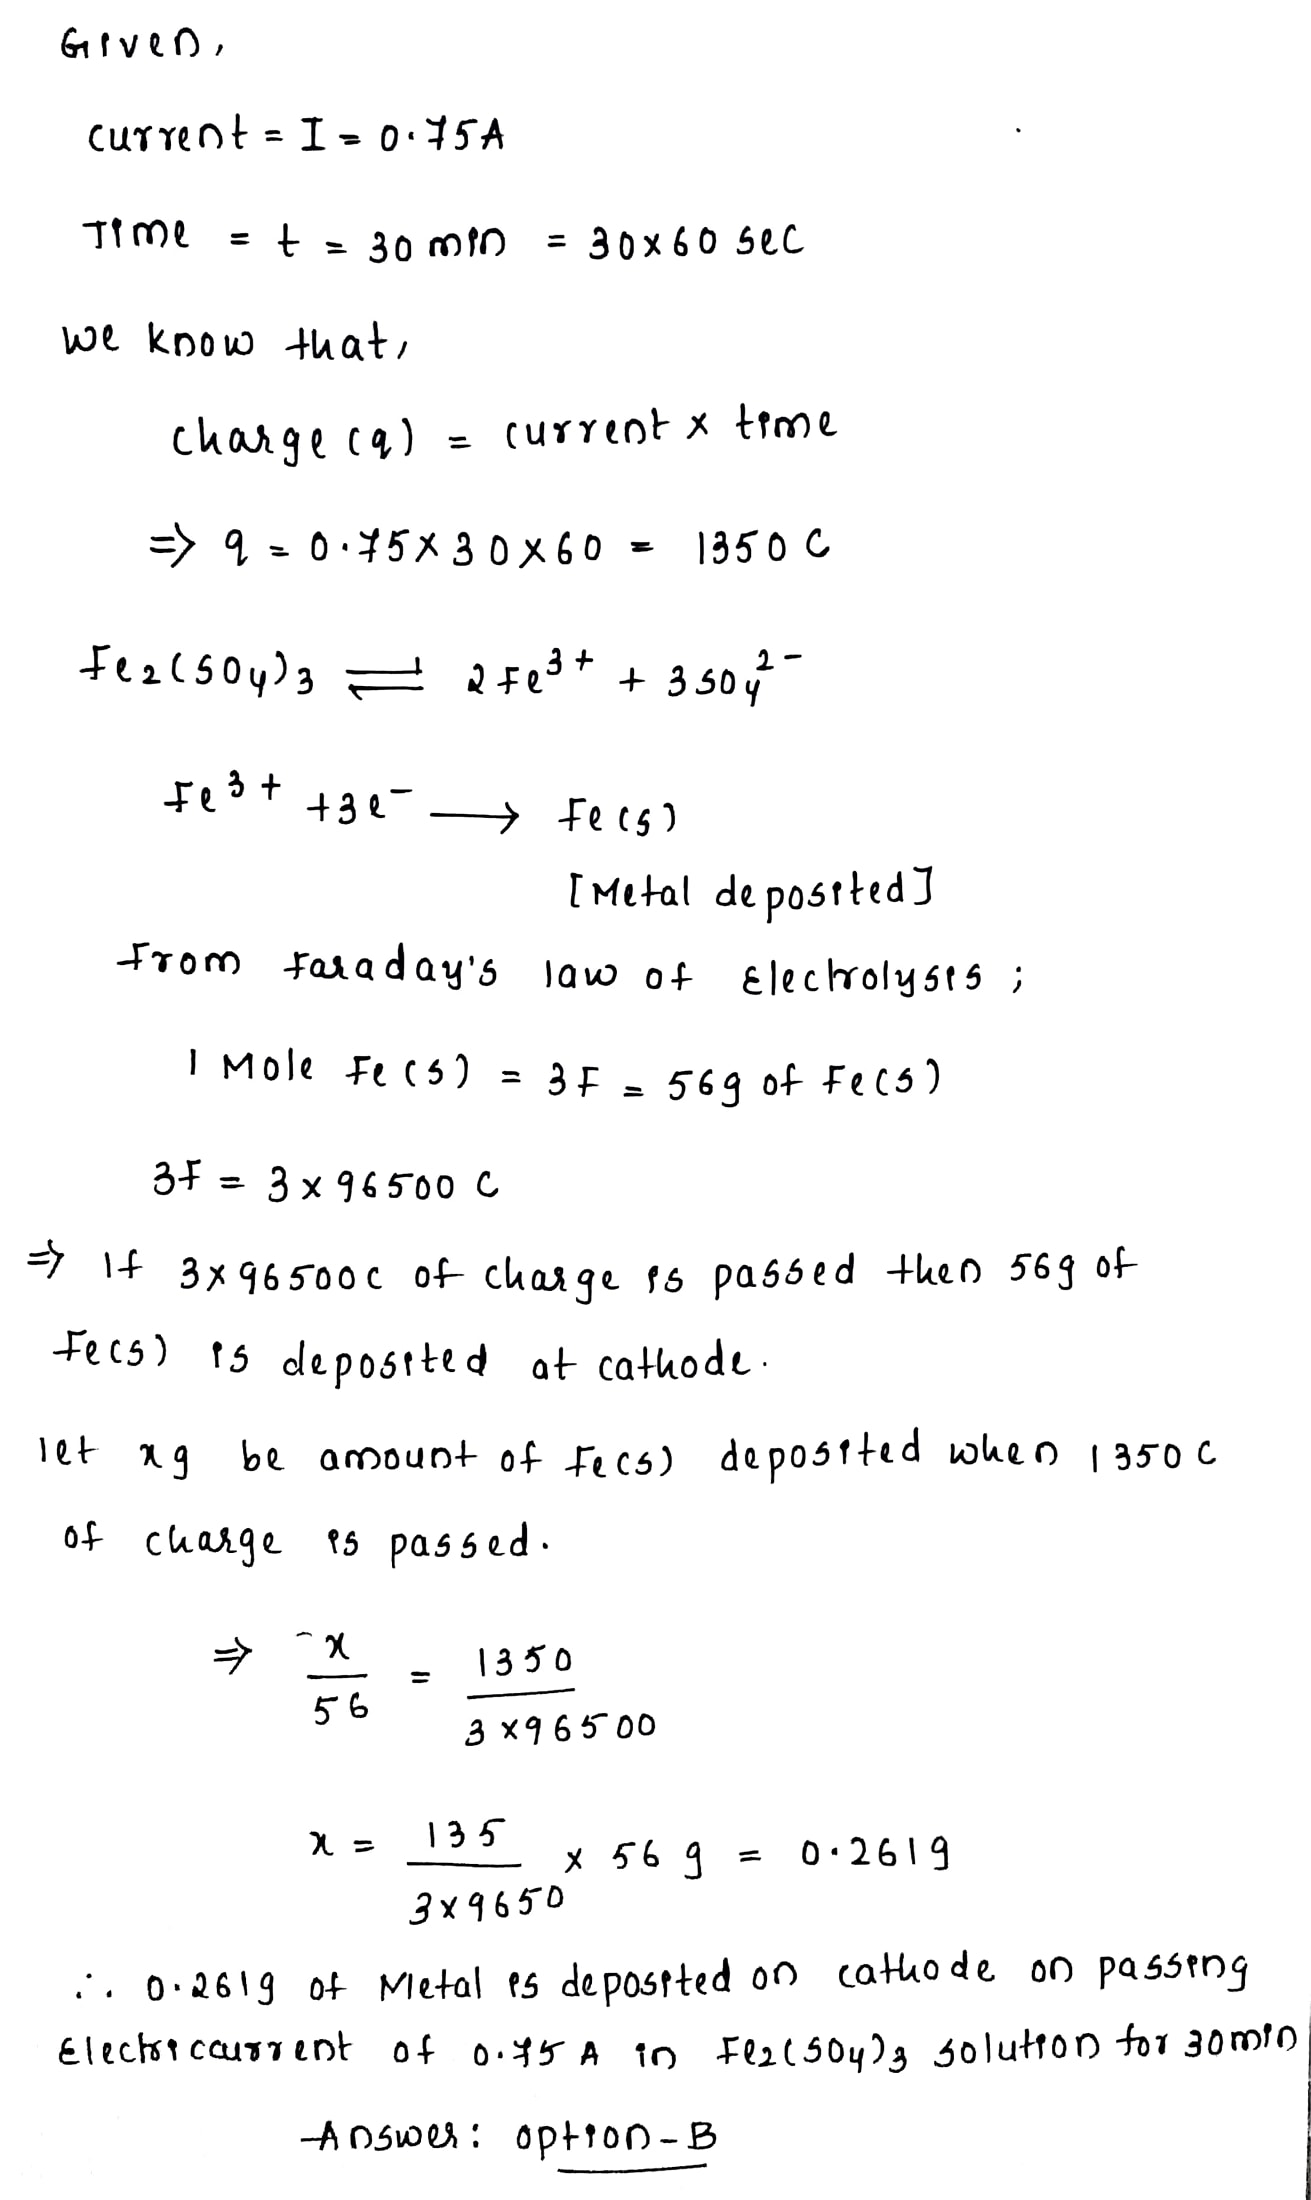 Given,
current = I = 0.75A
Time = t = 30 min = 30×60 sec
we know that,
charge (q) = current × time
⇒ q = 0.75 × 30 × 60 = 1350 C
Fe₂(SO₄)₃ ⇌ 2Fe³⁺ + 3SO₄²⁻
Fe³⁺ + 3e⁻ → Fe(s)
[Metal deposited]
From Faraday's law of Electrolysis ;
1 Mole Fe(s) = 3F = 56g of Fe(s)
3F = 3 × 96500 C
⇒ If 3×96500C of charge is passed then 56g of
Fe(s) is deposited at cathode.
let x g be amount of Fe(s) deposited when 1350 C
of charge is passed.
⇒ x/56 = 1350/(3×96500)
x = 135/(3×9650) × 56 g = 0.261g
∴ 0.261g of Metal is deposited on cathode on passing
Electric current of 0.75 A in Fe₂(SO₄)₃ solution for 30min
Answer: option-B